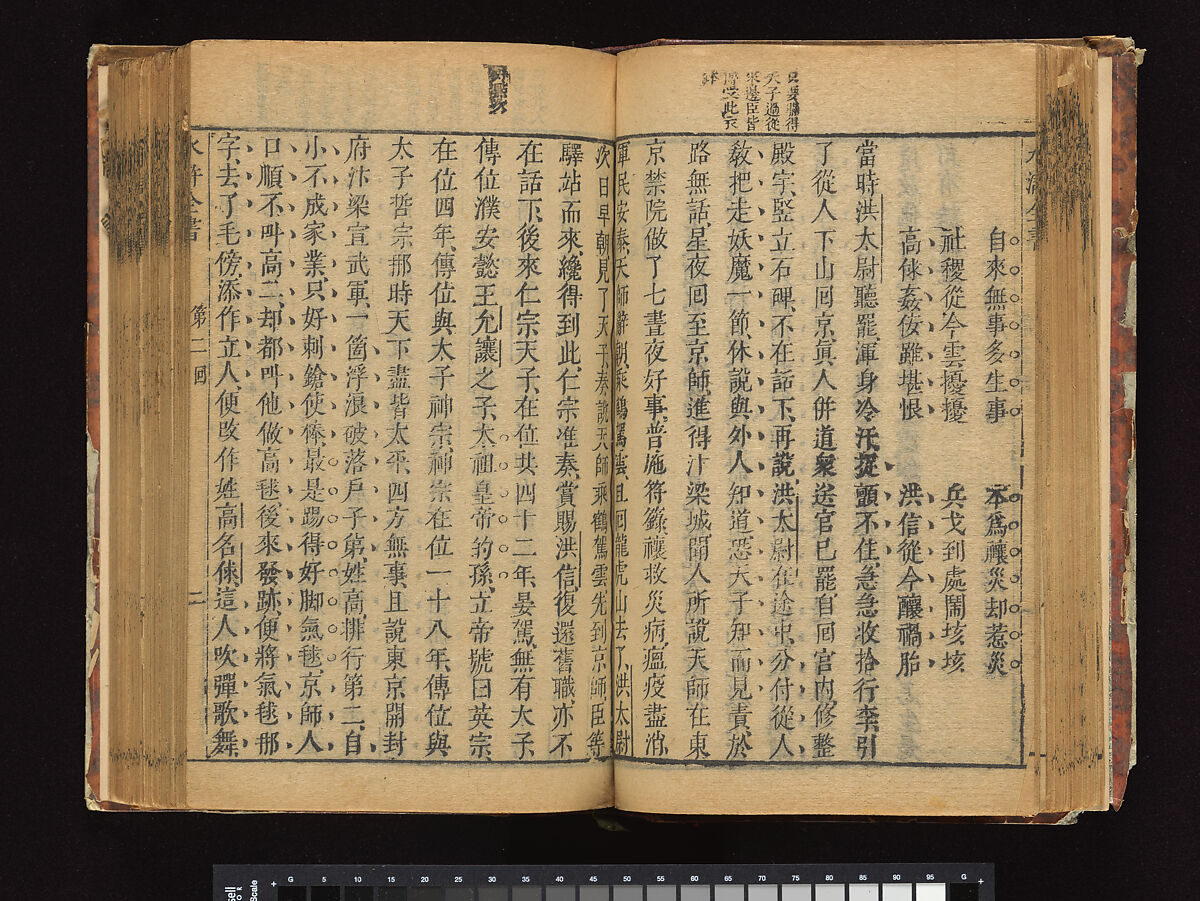 自來無事多生事 本爲禳災却惹災
社稷從今雲擾擾 兵戈到處鬧垓垓
高俅奸佞雖堪恨 洪信從今釀禍胎
當時洪太尉聽罷渾身冷汗捉顫不住急急收拾行李引
了從人下山回京眞人併道衆送官已罷自回宫内修整
殿宇竪立石碑不在話下再說洪太尉在途中分付從人
敎把走妖魔一節休說與外人知道恐天子知而見責於
路無話星夜回至京師進得汴梁城聞人所說天師在東
京禁院做了七晝夜好事普施符籙禳救災病瘟疫盡消
軍民安泰天師辭朝乘鶴駕雲且回龍虎山去了洪太尉
次日早朝見了天子奏說天師乘鶴駕雲先到京師臣等
驛站而來纔得到此仁宗准奏賞賜洪信復還舊職亦不
在話下後來仁宗天子在位共四十二年晏駕無有太子
傳位濮安懿王允讓之子太祖皇帝的孫立帝號曰英宗
在位四年傳位與太子神宗神宗在位一十八年傳位與
太子哲宗那時天下盡皆太平四方無事且說東京開封
府汴梁宣武軍一箇浮浪破落戶子弟姓高排行第二自
小不成家業只好刺鎗使棒最是踢得好脚氣毬京師人
口順不叫高二却都叫他做高毬後來發跡便將氣毬那
字去了毛傍添作立人便改作姓高名俅這人吹彈歌舞
只要瞞得
天子過從
來邊臣皆
水滸全書
第二回
二
0 5 10 15 20 25 30 35 40 45 50 55 60 65 70 75 80 85 90 95
Scale